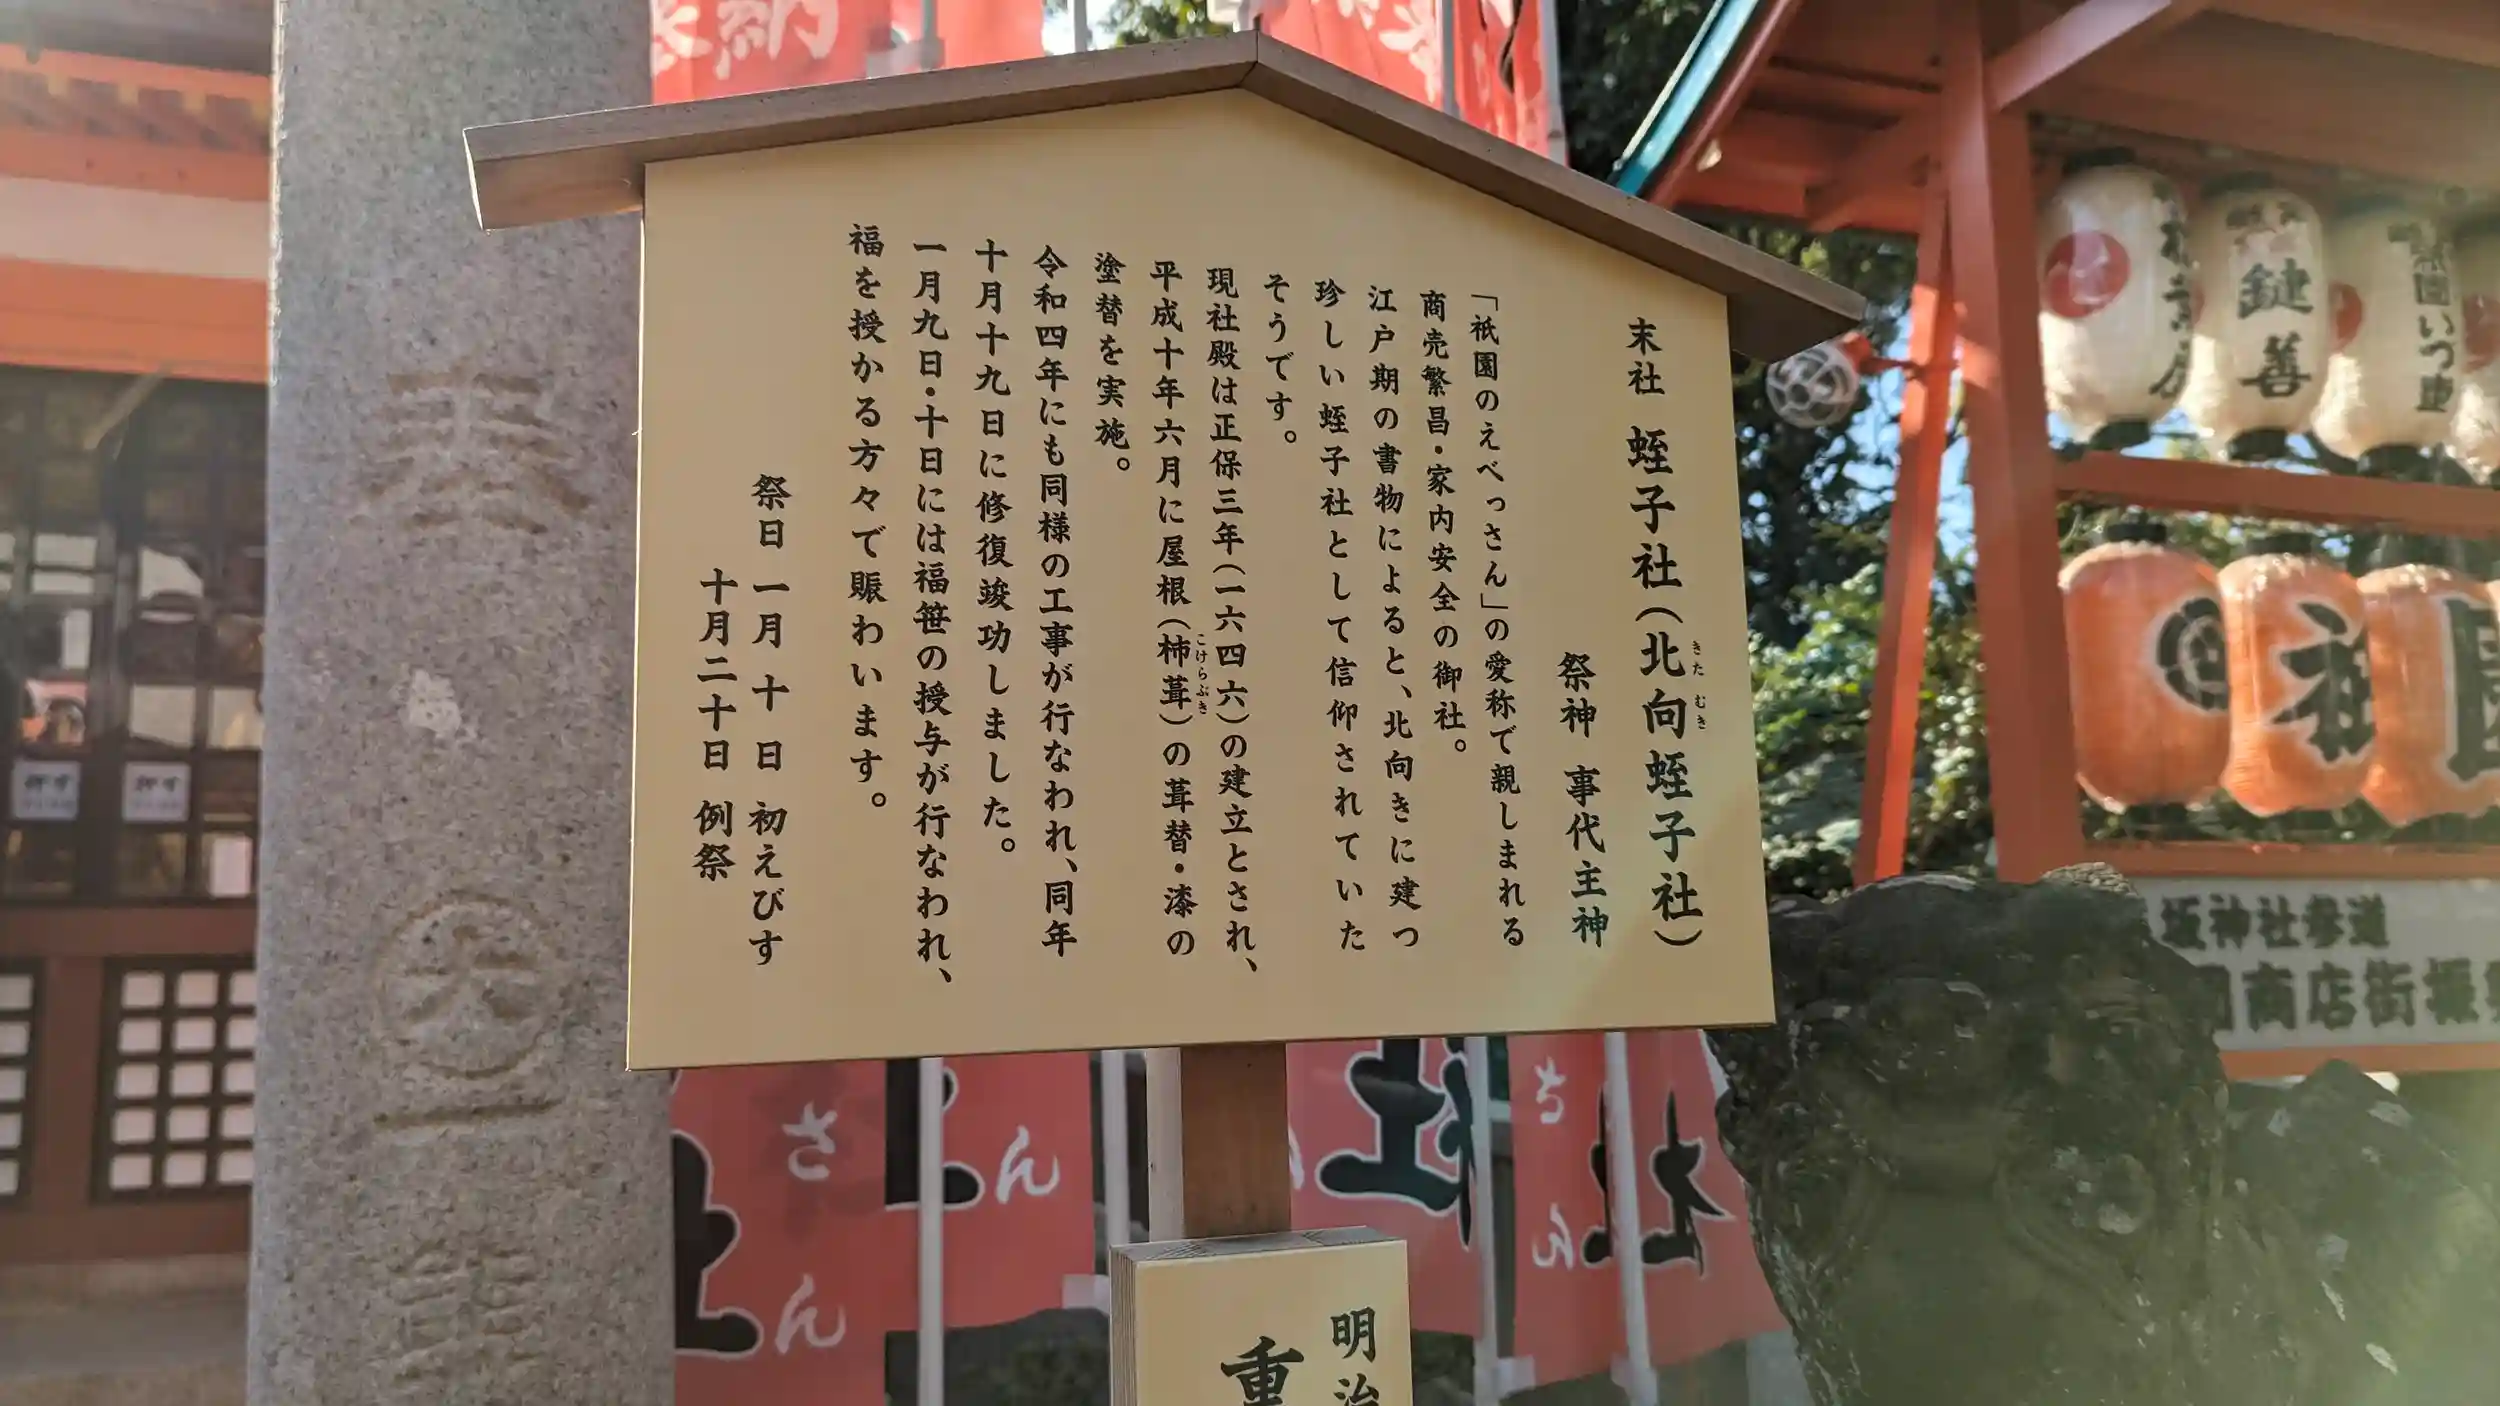 末社 蛭子社（北向蛭子社）
きた むき
祭神 事代主神
「祇園のえべっさん」の愛称で親しまれる
商売繁昌・家内安全の御社。
江戸期の書物によると、北向きに建つ
珍しい蛭子社として信仰されていた
そうです。
現社殿は正保三年（一六四六）の建立とされ、
平成十年六月に屋根（柿葺）の葺替・漆の
こけらぶき
塗替を実施。
令和四年にも同様の工事が行なわれ、同年
十月十九日に修復竣功しました。
一月九日・十日には福笹の授与が行なわれ、
福を授かる方々で賑わいます。
祭日 一月 十 日 初えびす
十月二十日 例祭
明治
重
奉納
鍵善
祇
園
坂神社参道
商店街振
社
さん
社
ん
社